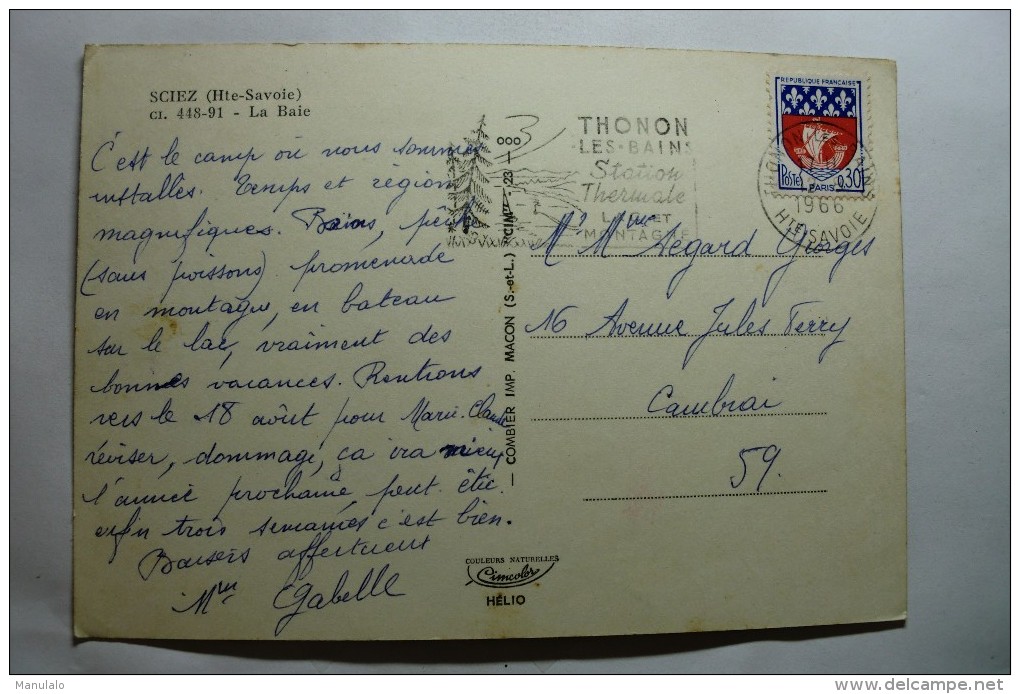 SCIEZ (Hte-Savoie)
CI. 448-91 - La Baie
C'est le camp où nous sommes
installés. Temps et région
magnifiques. Bains, pêche
(sans poissons) promenade
en montagne, en bateau
sur le lac, vraiment des
bonnes vacances. Rentrons
vers le 18 août pour Marie-Claude
réviser, dommage, ça ira mieux
l'année prochaine peut-être.
enfin trois semaines c'est bien.
Baisers affectueux
Mme Gabelle
— COMBIER IMP. MACON (S.-et-L.)
COULEURS NATURELLES
Cimcolor
HÉLIO
THONON
LES-BAINS
Station
Thermale
LAC ET
MONTAGNE
REPUBLIQUE FRANÇAISE
POSTES
0,30
PARIS
1966
HTE SAVOIE
Mr Mme Segard Georges
16 Avenue Jules Ferry
Cambrai
59.
Manulalo
www.delcampe.net